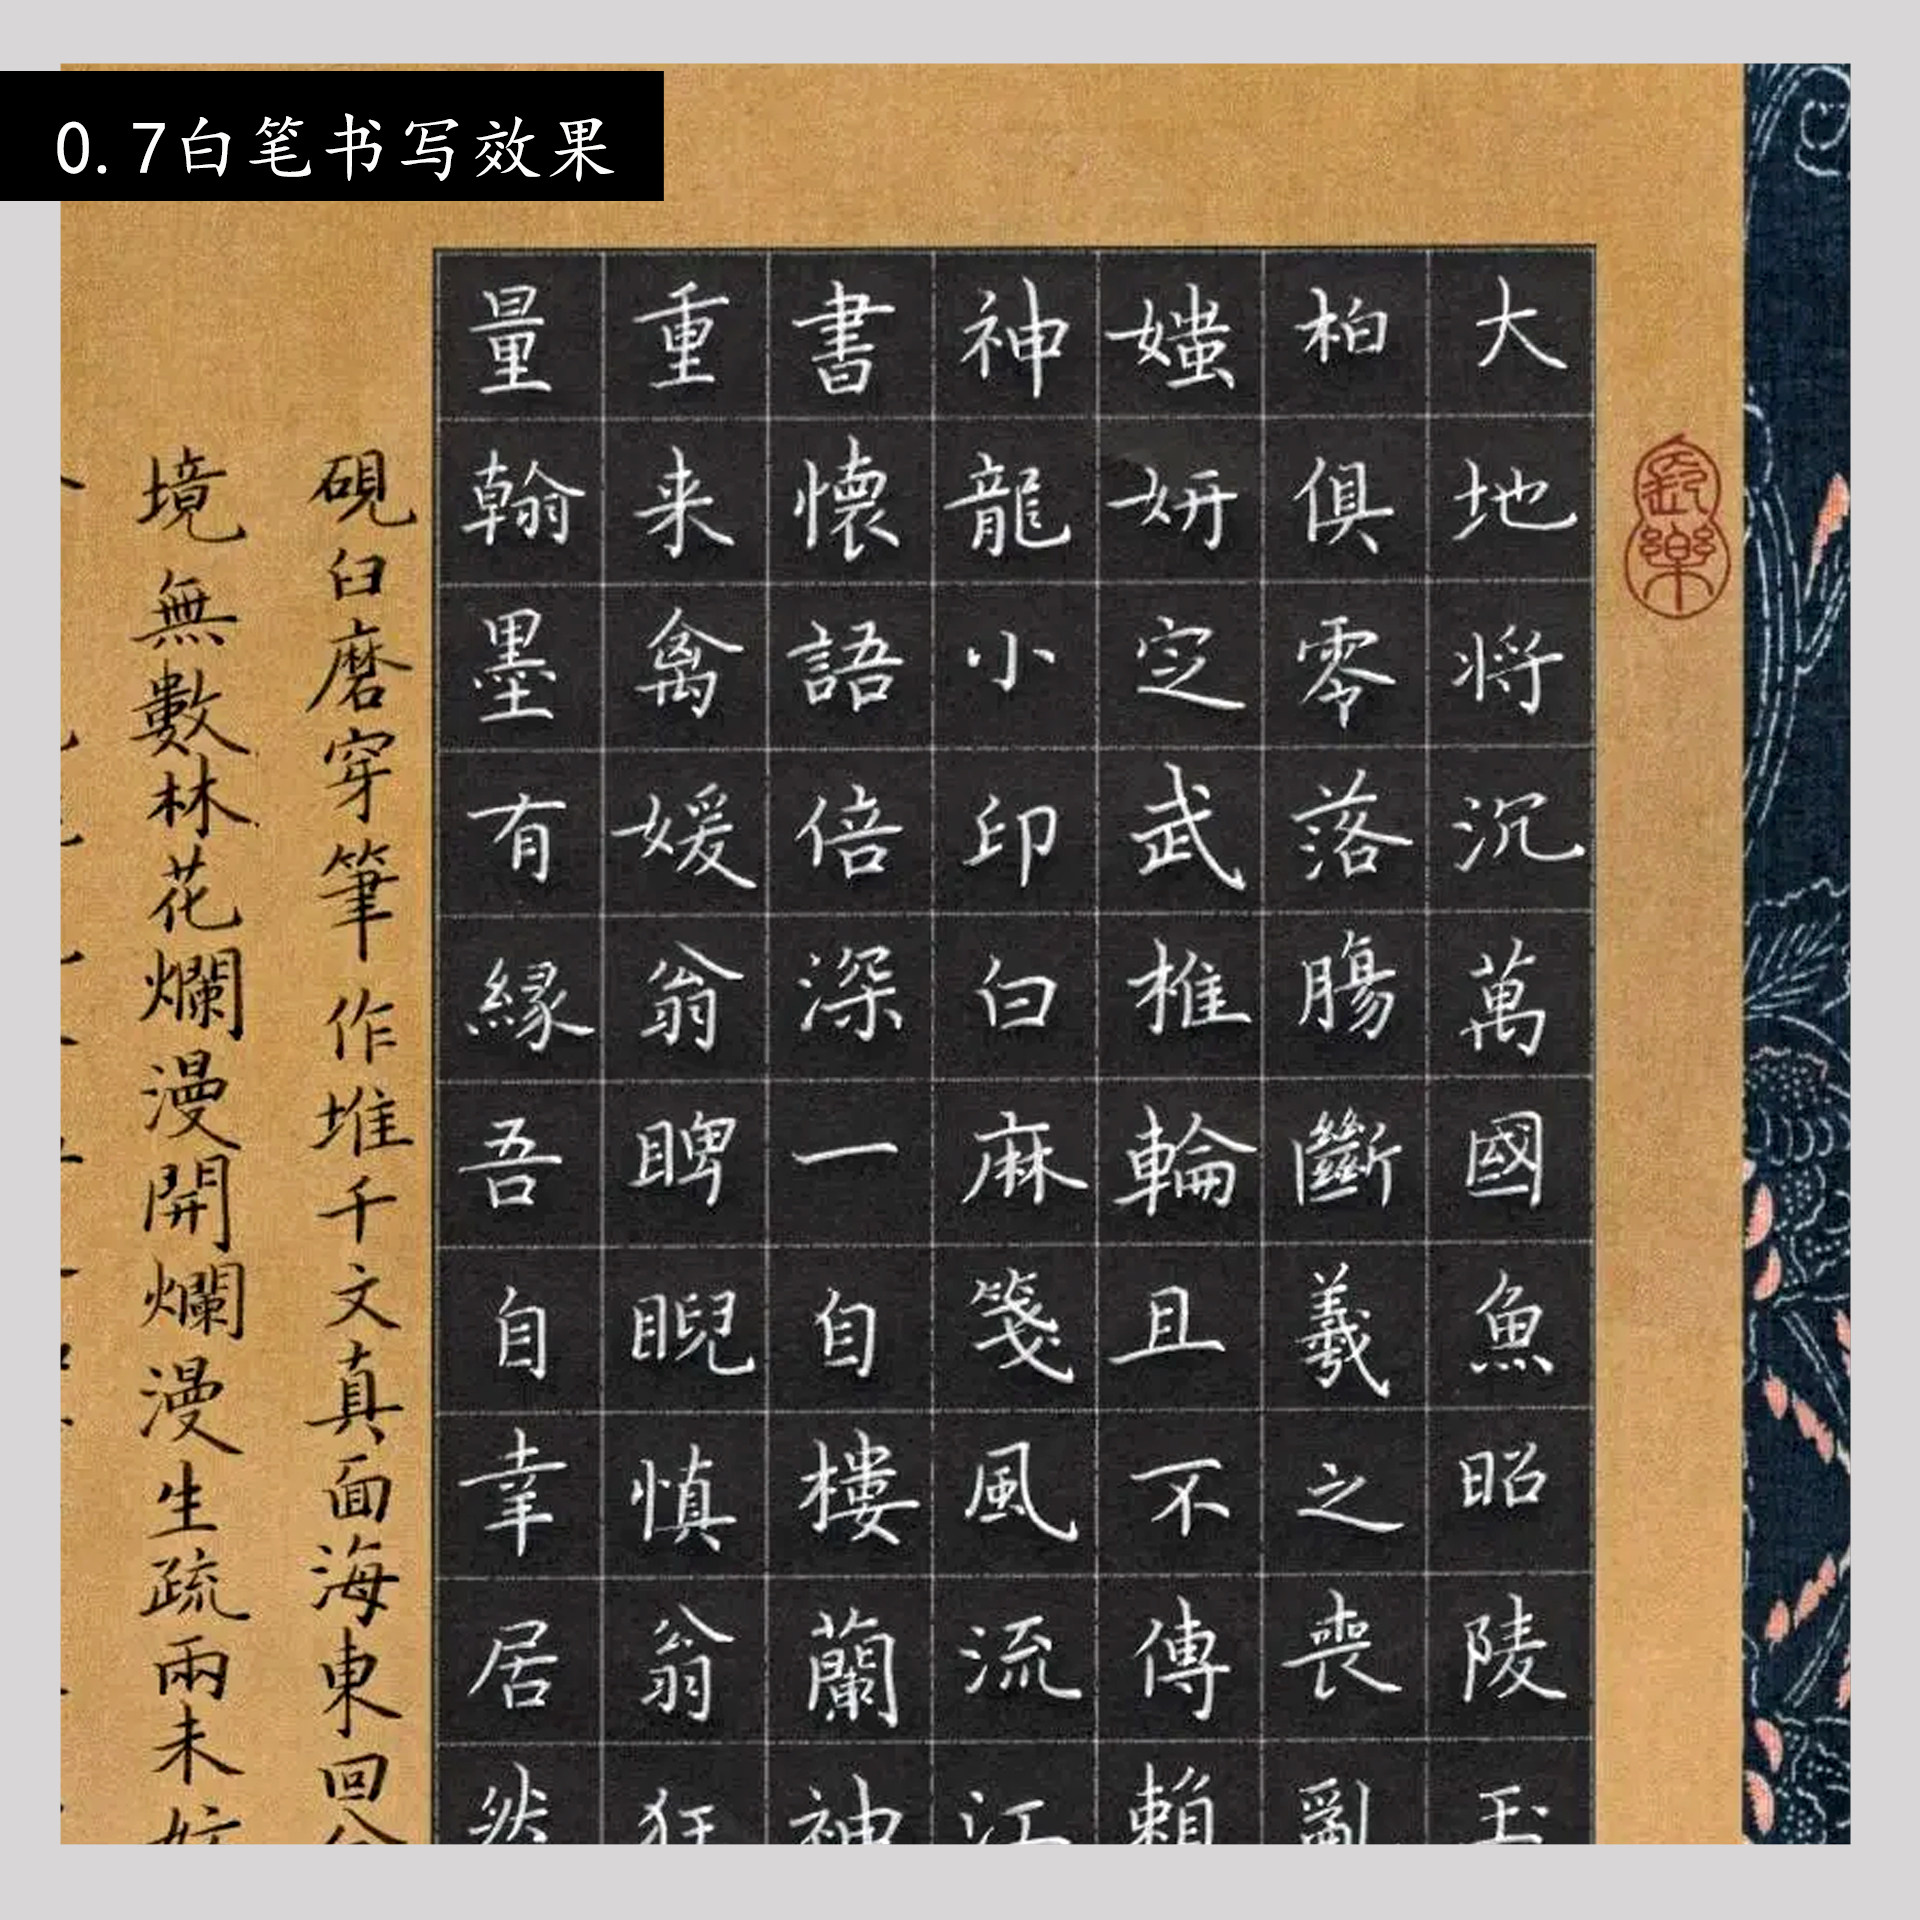 0.7白笔书写效果
大地将沉萬國魚昭陵玉
柏俱零落腸斷羲之喪亂
媸妍定武椎輪且不傳賴
神龍小印白麻箋風流江
書懷語倍深一自樓蘭神
重来禽媛翁睥睨慎翁狂
量翰墨有緣吾自幸居然
硯臼磨穿筆作堆千文真面海東回
境無數林花爛漫開爛漫生疏兩未妨